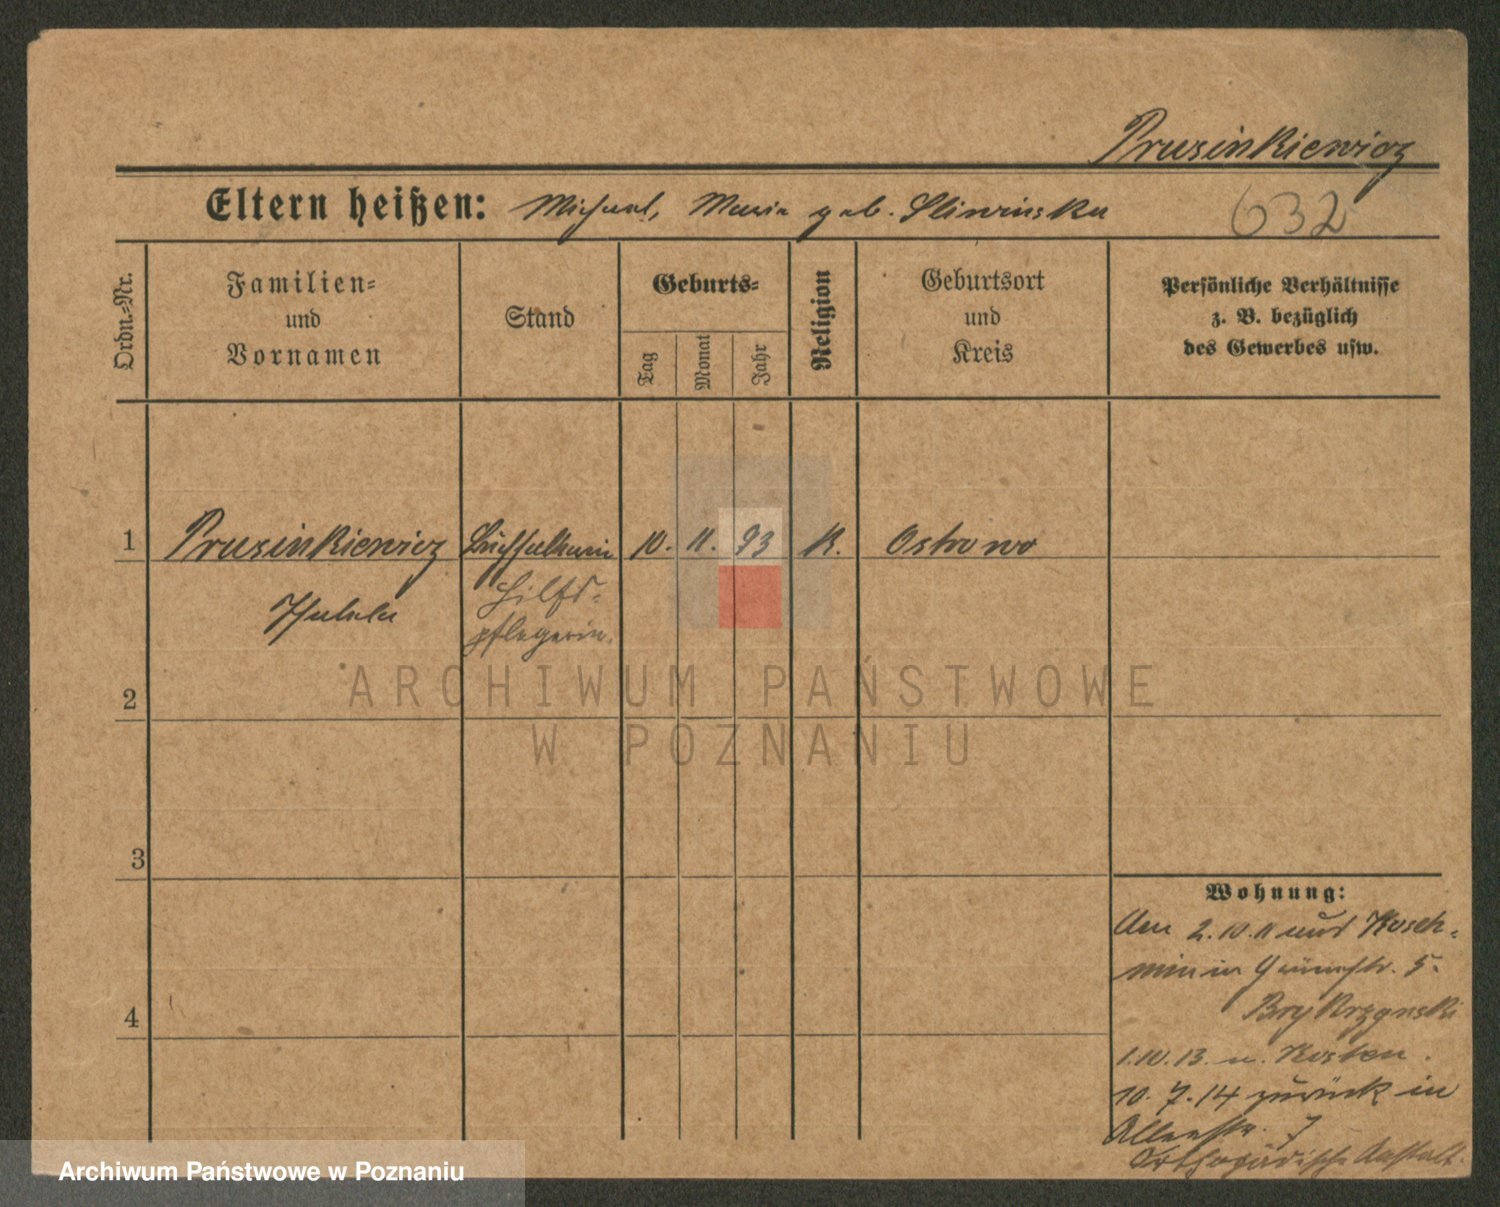 Prusinkiewicz
Eltern heißen: Michael, Marie geb. Sliwinska
632
Ordn.-Nr.
Familien-
und
Vornamen
Stand
Geburts-
Tag
Monat
Jahr
Religion
Geburtsort
und
Kreis
Persönliche Verhältnisse
z. B. bezüglich
des Gewerbes usw.
1 Prusinkiewicz 10. 11. 93 K. Ostrowo
Hilfs-
pflegerin.
ARCHIWUM PAŃSTWOWE
W POZNANIU
2
3
4
Wohnung:
Am 2.10.11 aus Kosch-
min in 5.
1.10.13. n. Kosten.
10.7.14 zurück in
7
Orthopädische Anstalt.
Archiwum Państwowe w Poznaniu